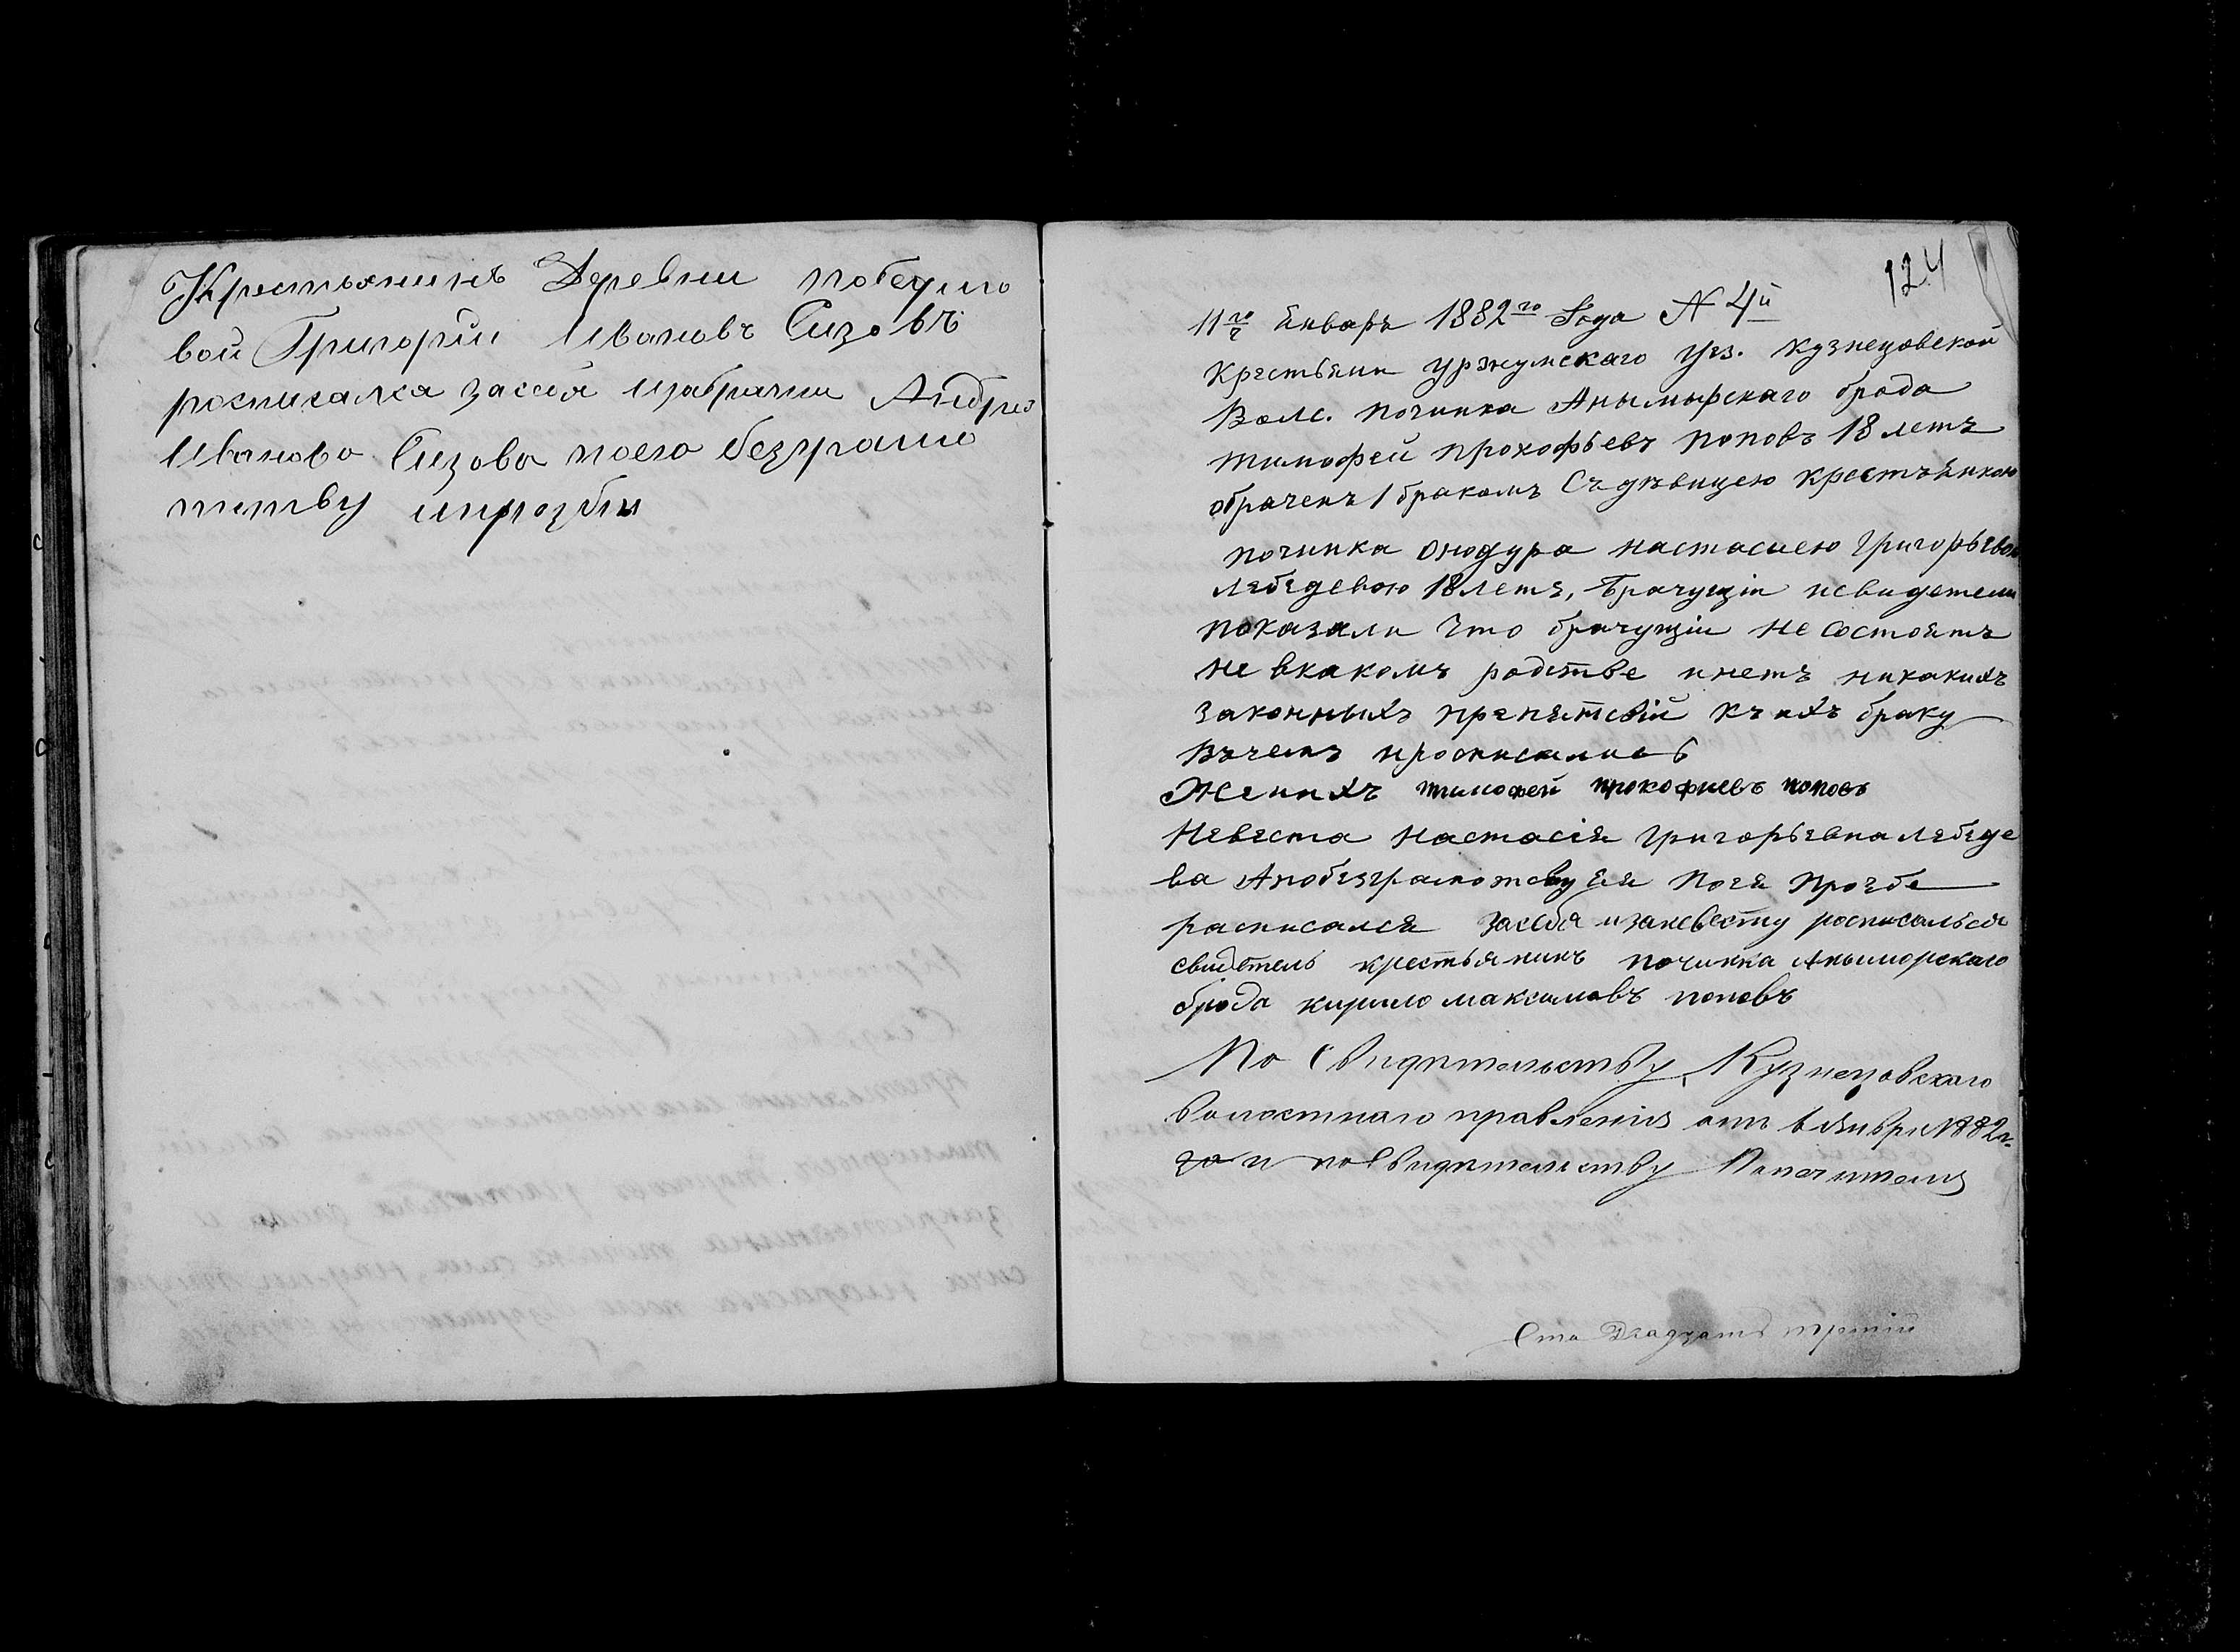 Крестьянинъ Деревни победило
вой Григорій Ивановъ Сизовъ
росписалса засебя изабратии Андрея
Иванова Сизова поего безграмо
тству ипрозби
124
11го ч Январь 1882го Года № 4й
Крестьянин Уржумскаго уез. Кузнецовской
Волс. починка Анымырскаго брода
тимофей прохофьевъ поповъ 18 летъ
обраченъ 1 бракомъ Съ девицею крестьянкою
починка онодура настасиею Григорьевою
лебедевою 18 летъ, Брачущіи исвидетели
показали что брачущіи не состоятъ
не вкакомъ родстве инетъ никакихъ
законныхъ препятсвій къ ихъ браку
Въчемъ и росписались
Женихъ тимофей прокофиевъ поповъ
Невеста Настасія Григорьевна лебеде
ва Апобезграмотсву ея Поея Прозбе
расписался засебя изаневесту росписалься
свидетель крестьянинъ починка Аныморскаго
брода кирило максимовъ поповъ
По Свидетельству Кузнецовскаго
Волостнаго правленія отъ Января 1882 г.
и по Свидетельству Попечителя
Сто Двадцать третій